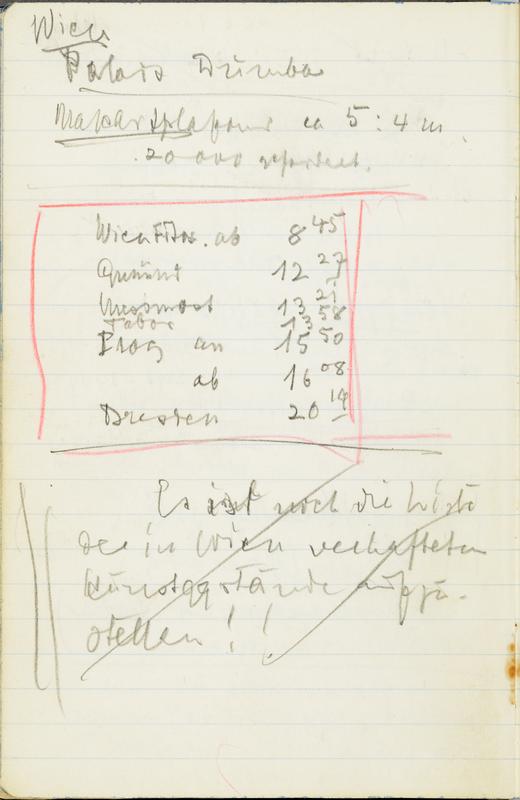 Wien
Palais Dumba
Makartplafond ca 5 : 4 m.
20 000 gefordert.
Wien FJB. ab 8 45
Gmünd 12 27
13 21
Tabor 13 58
Prag an 15 50
ab 16 08
Dresden 20 14
Es ist noch die Liste
der in Wien verhafteten
Kunstggstände aufzu-
stellen ! !